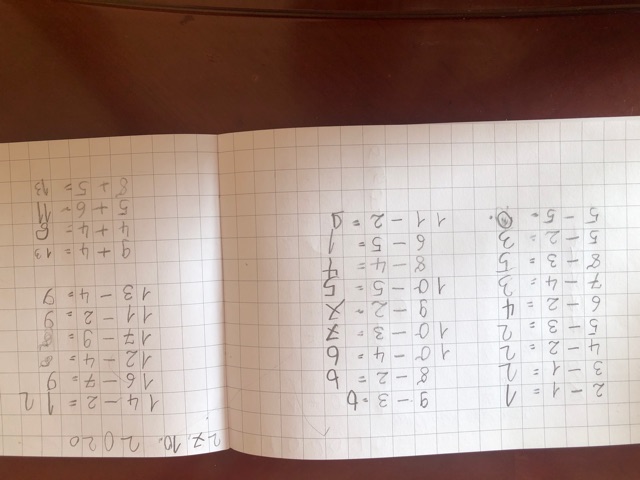 2 - 1 = 1
3 - 1 = 2
4 - 2 = 2
5 - 3 = 2
6 - 2 = 4
7 - 4 = 3
8 - 3 = 5
5 - 2 = 3
5 - 5 = 0
9 - 3 = 6
8 - 2 = 6
10 - 4 = 6
10 - 3 = 7
9 - 2 = 7
10 - 5 = 5
8 - 4 = 4
6 - 5 = 1
11 - 2 = 9
27.10.2020
14 - 2 = 12
16 - 7 = 9
12 - 4 = 8
17 - 9 = 8
11 - 2 = 9
13 - 4 = 9
9 + 4 = 13
4 + 4 = 8
5 + 6 = 11
8 + 5 = 13